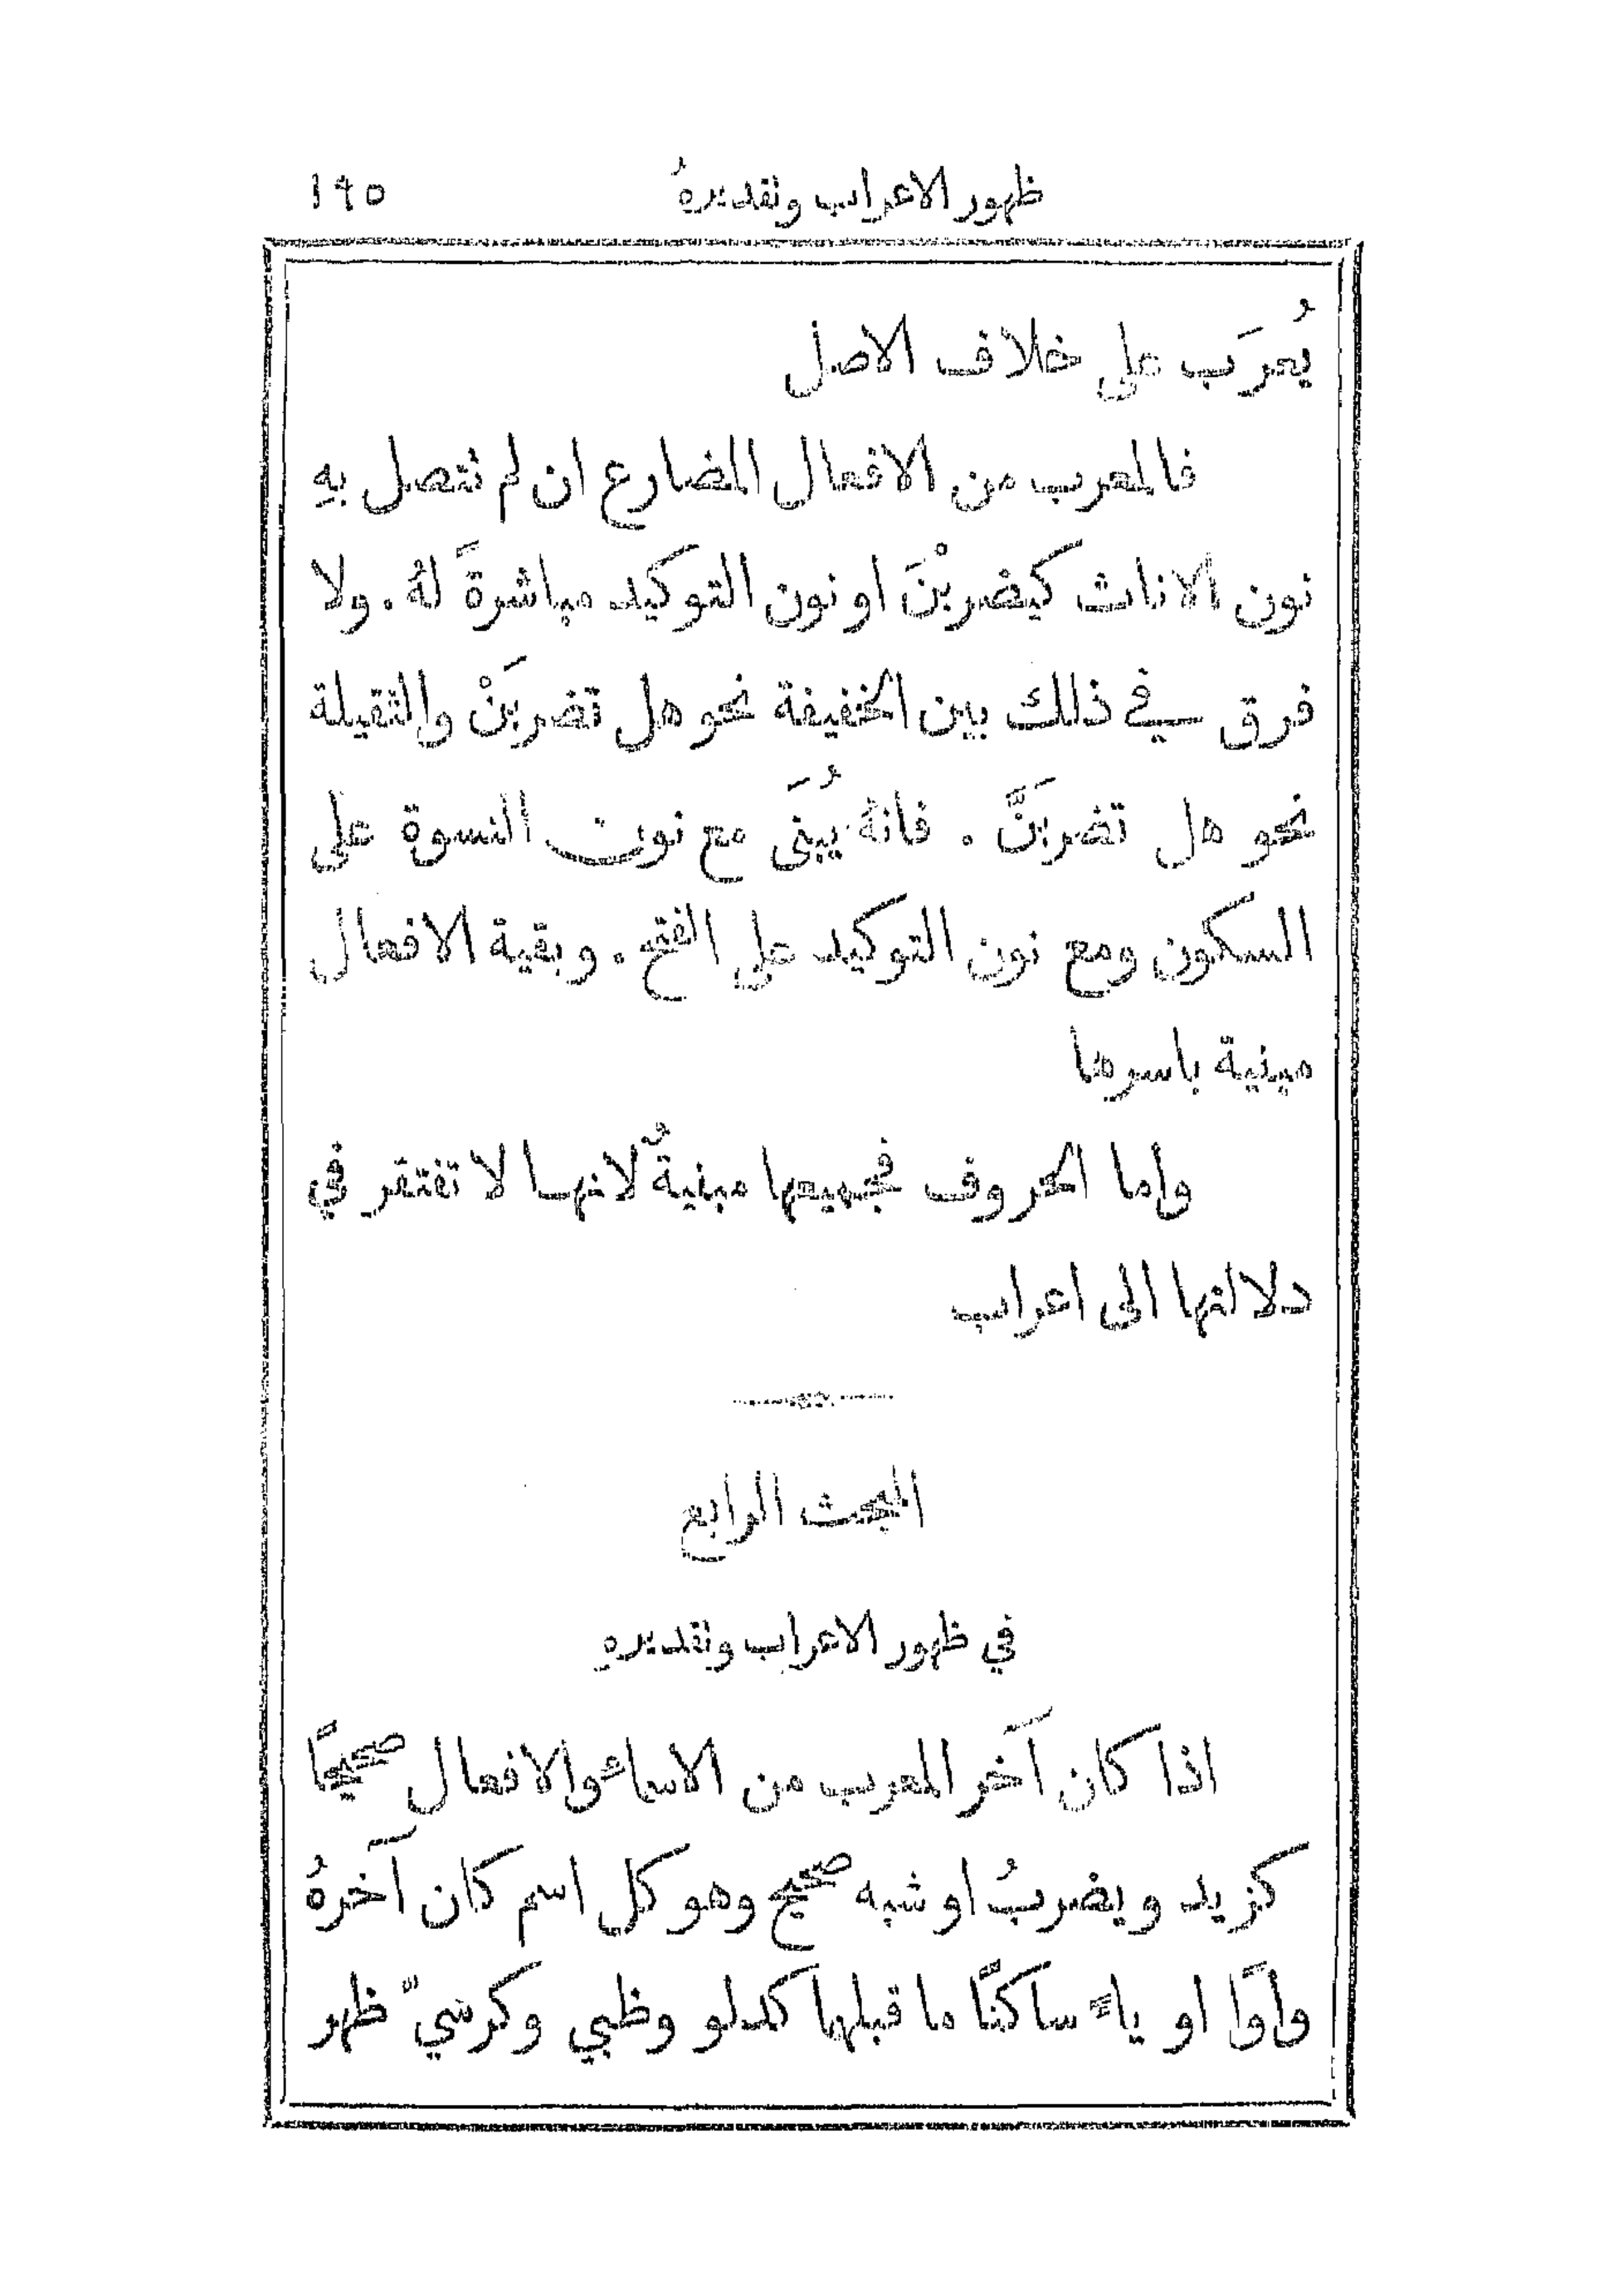 ظهور الاعراب وتقديرهُ ١٩٥
يُعرَب على خلاف الاصل
فالمعرب من الافعال المضارع ان لم نتصل بهِ
نون الاناث كيضربْنَ او نون التوكيد مباشرةً لهُ . ولا
فرق في ذلك بين الخفيفة نحو هل تضربَنْ والثقيلة
نحو هل تضربَنَّ . فانهُ يُبنَى مع نون النسوة على
السكون ومع نون التوكيد على الفتح . وبقية الافعال
مبنية باسرها
واما الحروف فجميعها مبنيةٌ لانها لا تفتقر في
دلالتها الى اعراب
المبحث الرابع
في ظهور الاعراب وتقديرهِ
اذا كان آخر المعرب من الاسماء والافعال صحيحًا
كزيد ويضربُ او شبه صحيح وهو كل اسم كان آخرهُ
واوًا او ياءً ساكنًا ما قبلها كدلو وظبي وكرسيّ ظهر